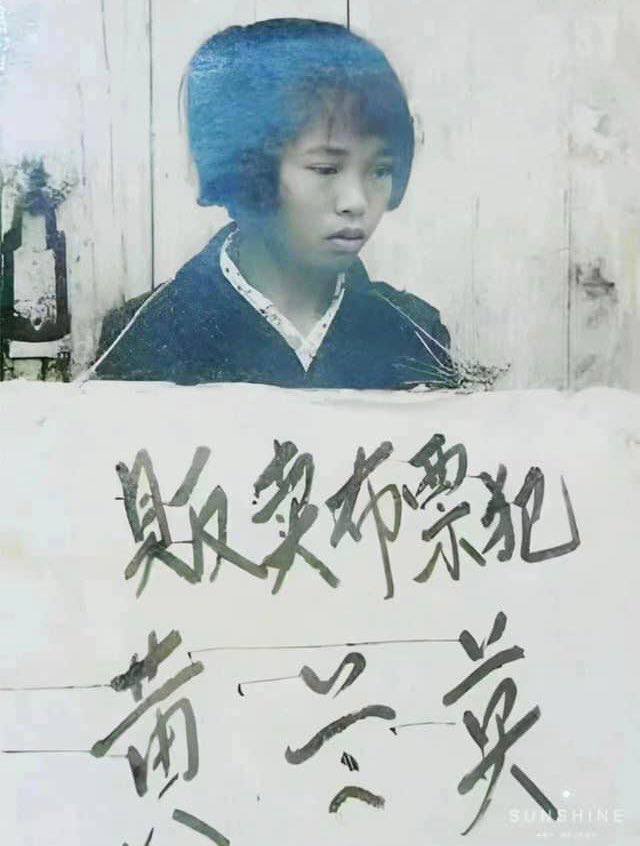 販卖布票犯
黄兰英
SUNSHINE